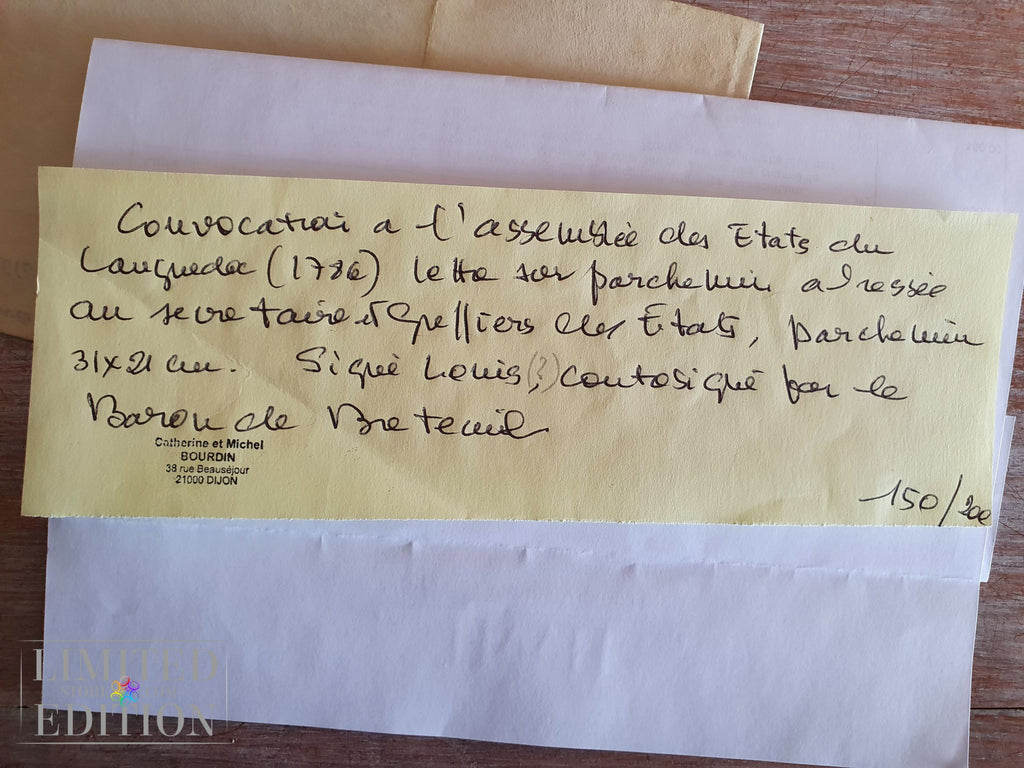 Convocation a l'assemblée des Etats du
Languedoc (1786) lettre sur parchemin adressée
au secretaire et Greffiers des Etats, parchemin
31x21 cm. Signé Louis(?), contresigné par le
Baron de Breteuil
Catherine et Michel
BOURDIN
38 rue Beauséjour
21000 DIJON
150/200
LIMITED
EDITION